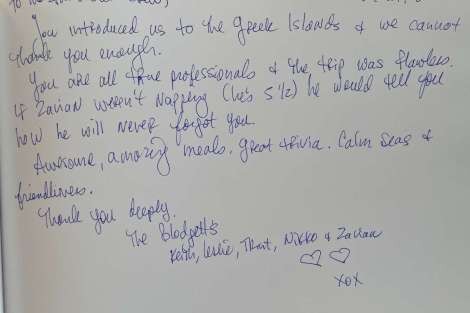 You introduced us to the Greek Islands & we cannot
thank you enough.
You are all true professionals & the trip was flawless.
If Zavian weren't napping (he's 5 1/2) he would tell you
how he will never forget you.
Awesome, amazing meals. Great trivia. Calm Seas &
friendliness.
Thank you deeply.
The Blodgetts
Keith, Leslie, Trent, Nikko & Zavian
XOX